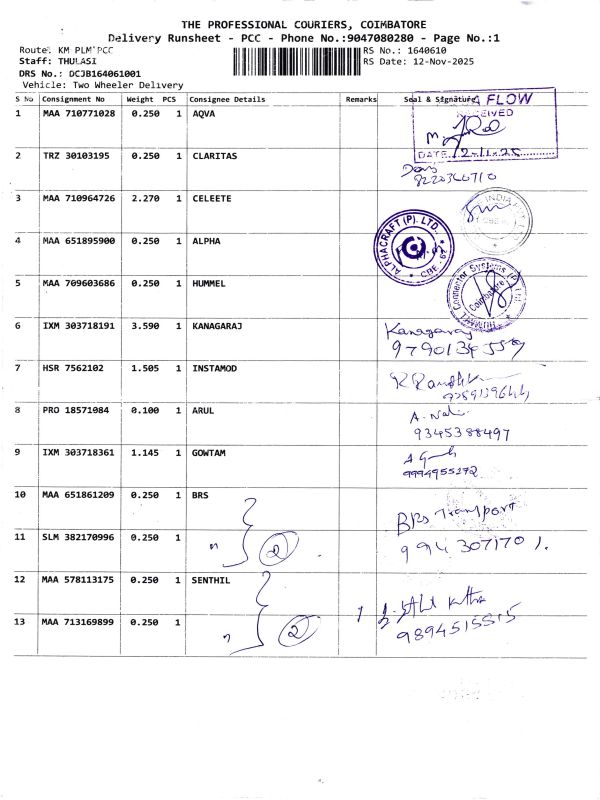 THE PROFESSIONAL COURIERS, COIMBATORE
Delivery Runsheet - PCC - Phone No.:9047080280 - Page No.:1
Route: KM PLM PCC
RS No.: 1640610
Staff: THULASI
RS Date: 12-Nov-2025
DRS No.: DCJB164061001
Vehicle: Two Wheeler Delivery
S No Consignment No Weight PCS Consignee Details Remarks Seal & Signature
1 MAA 710771028 0.250 1 AQVA
A FLOW
RECEIVED
DATE 12-11-25
2 TRZ 30103195 0.250 1 CLARITAS
8220360710
3 MAA 710964726 2.270 1 CELEETE
INDIA
4 MAA 651895900 0.250 1 ALPHA
ALPHACRAFT (P). LTD.
CBE - 62
5 MAA 709603686 0.250 1 HUMMEL
HUMMEL Connector Systems (P) Ltd.
Coimbatore
6 IXM 303718191 3.590 1 KANAGARAJ
Kanagaraj
7 HSR 7562102 1.505 1 INSTAMOD
8 PRO 18571084 0.100 1 ARUL
9345388497
9 IXM 303718361 1.145 1 GOWTAM
9994955272
10 MAA 651861209 0.250 1 BRS
BRS Transport
11 SLM 382170996 0.250 1
" 2
9943071701
12 MAA 578113175 0.250 1 SENTHIL
13 MAA 713169899 0.250 1
" 2
9894515515